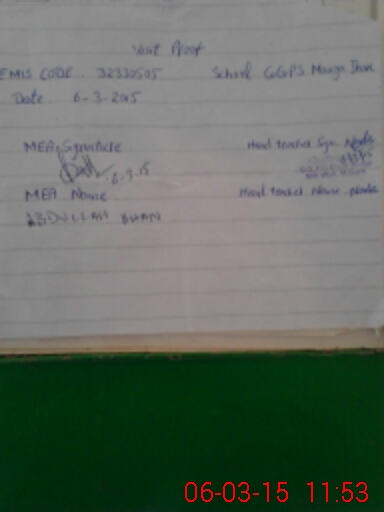 Visit Proof
EMIS CODE 32330505 School GGPS Mauza
Date 6-3-2015
MEA Signature Head teacher Sgn.
6.3.15
MEA Name Head teacher Name
ABDULLAH KHAN
06-03-15 11:53